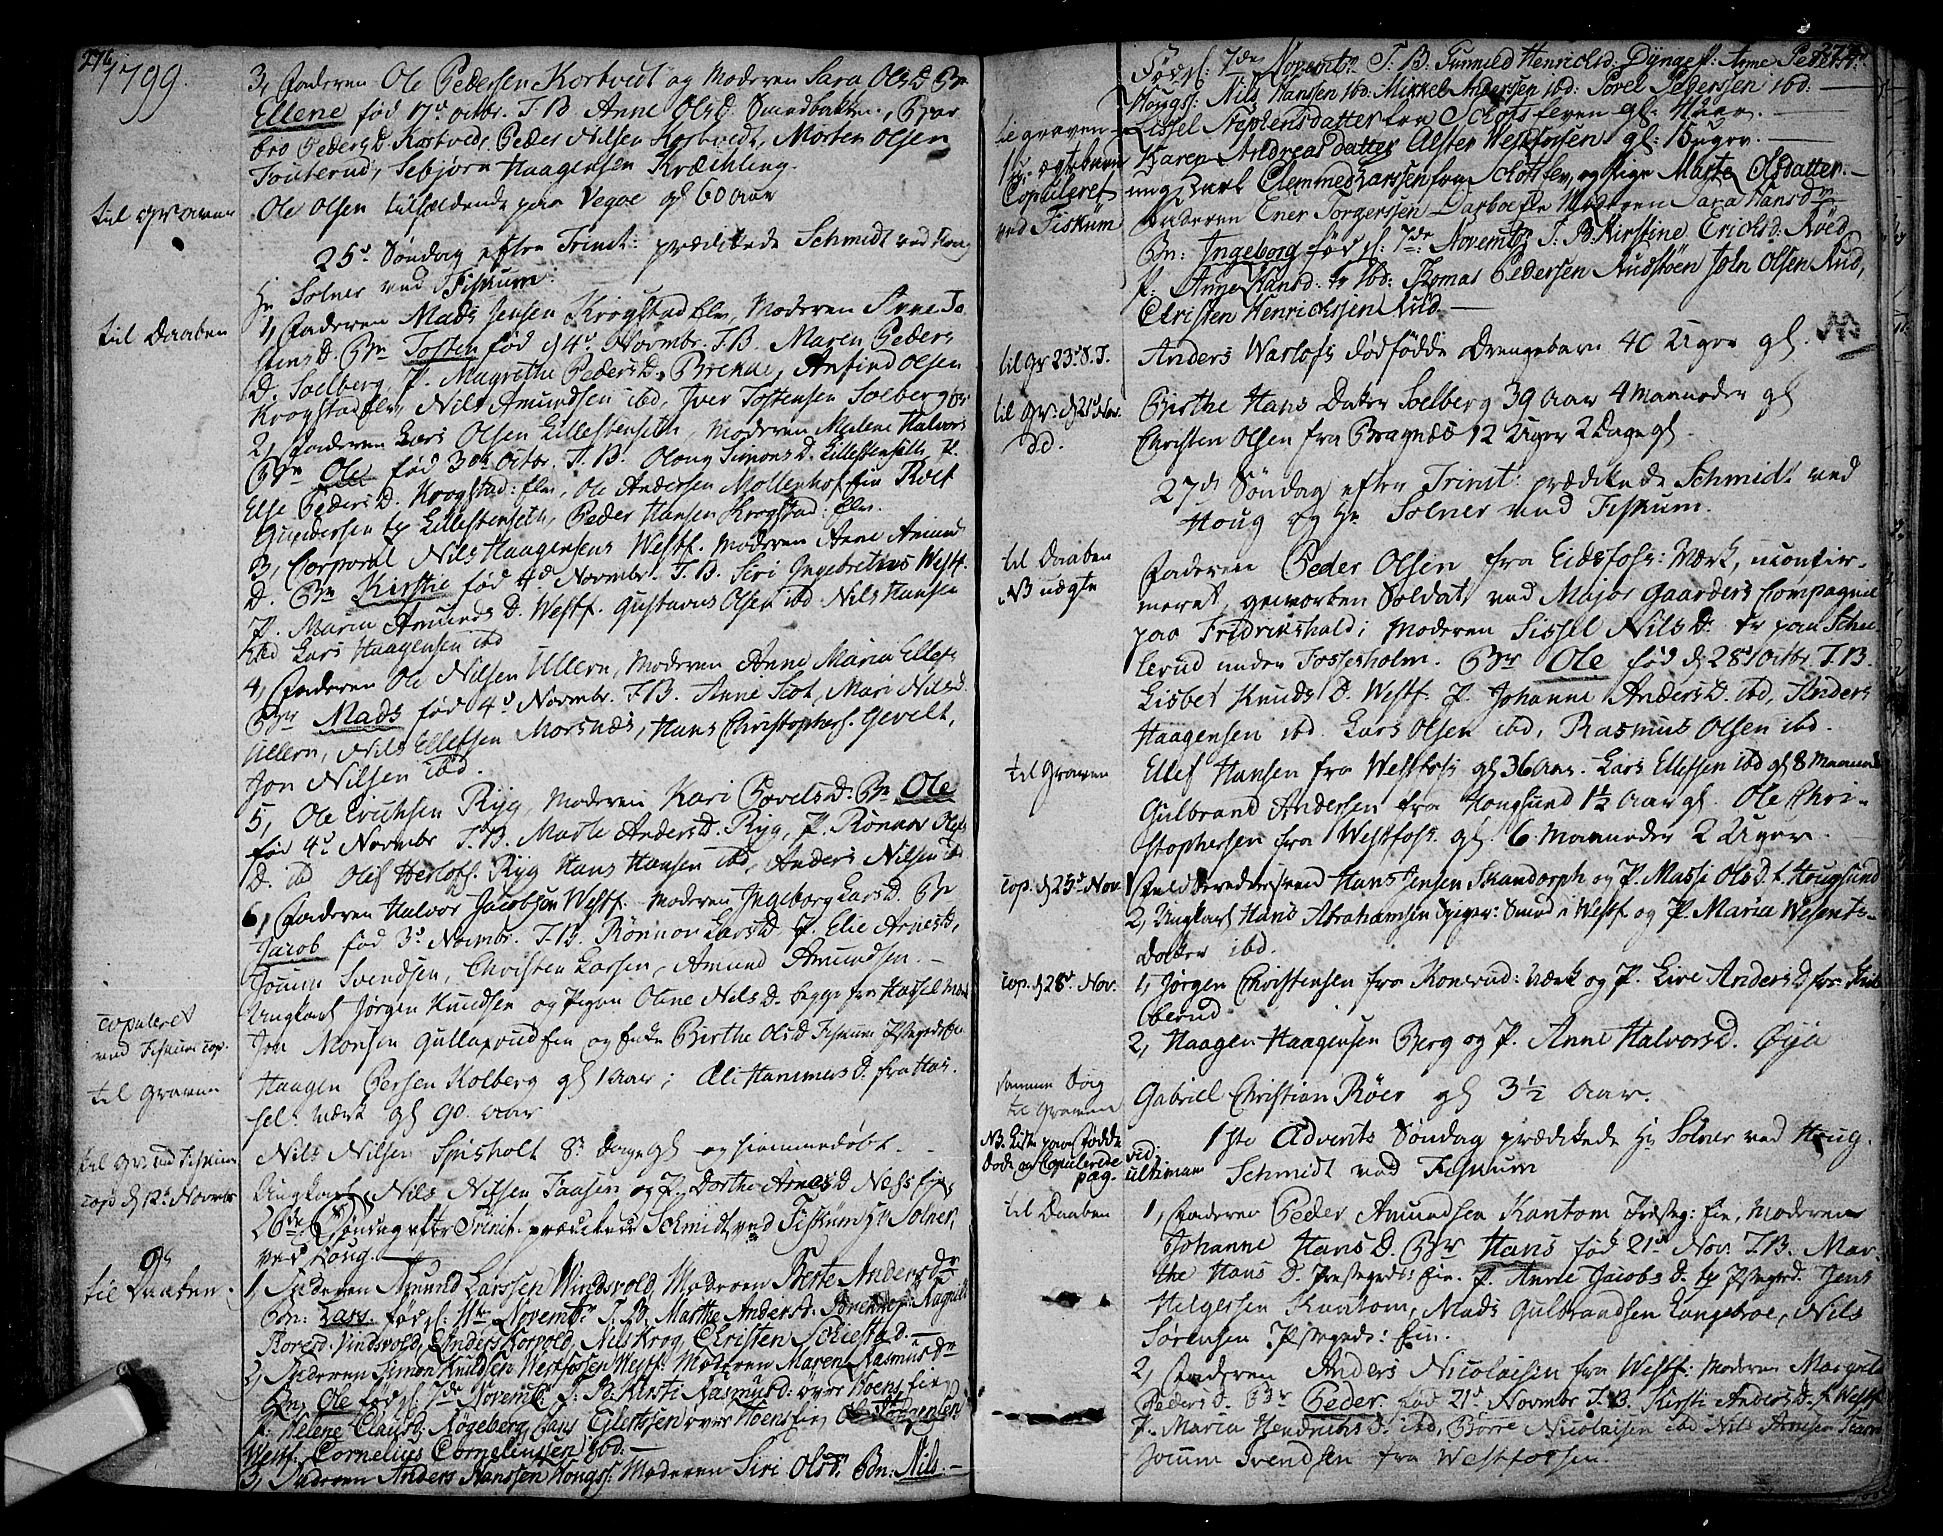 276
1799.
3, Faderen Ole Pedersen Kortvedt og Moderen Sara Ols D. Bn
Ellene fød 17de octbr. T. B. Anne Ols D. Smedbakken, Bær
bro Peders D. Kortved, Peder Nilsen Kortvedt, Morten Olsen
Touterud, Sebjørn Haagensen Krækling.
til graven
Ole Olsen tilholdende paa Vegoe gl 60 aar
25d Søndag efter Trinit: prædikede Schmidt ved Houg
Hr Solner ved Fiskum.
til Daaben
1, Faderen Mads Jensen Krogstad Elv, Moderen Anne To
stens D. Bn Tosten fød d 4d Novmbr. T. B. Maren Peders
D. Soelberg, P. Magrethe Peders D. Brekke, Anfind Olsen
Krogstad elv, Nils Amundsen ibd, Iver Tostensen Solberg
2, Faderen Lars Olsen Lillestenseth, Moderen Malene Halvors
Bn Ole fød 30d Octbr. T. B. Oloug Simons D. Lillestenseth P.
Else Peders D. Krogstad: elv, Ole Andersen Møllenhof fin Roef
Gundersen Lillestenseth, Peder Hansen Krogstad: elv.
3, Corporal Nils Haagensens Westf. Moderen Anne Amund
D. Bn Kirstie fød 4d Novmbr. T. B. Siri Ingebretens Westf.
P. Maria Amunds D. Westf. Gustavus Olsen ibd Nils Hansen
ibd Lars Haagensen ibd
4, Faderen Ole Nilsen Ullern, Moderen Anne Maria Ellefs
Bn Mads fød 4d Novmbr. T. B. Anne Scot, Mari Nils D.
Ullern, Nils Ellefsen Morsnæs, Hans Christophers. Gevelt,
Jon Nilsen ibd.
5, Ole Erichsen Ryg, Moderen Kari Povels D. Bn Ole
fød 4d Novmbr T. B. Marte Anders D. Ryg, P. Rønnov Olefs
D. ibd Olef Herlofs. Ryg Hans Hansen ibd, Anders Nilsen ib
6, Faderen Halvor Jacobsen Westf. Moderen Ingeborg Lars D. Bn
Jacob fød 3d Novmbr. T. B. Rønnov Lars D. P. Elie Arnes D,
Joeum Svendsen, Christen Larsen, Amund Amundsen. —
copuleret
Ungkarl Jørgen Knudsen og Pigen Oline Nils D. begge fra Hassel
ved Fiskum cop.
Jon Monsen Gullaprud fin og enke Birthe Ols D. Fiskum
til graven
Haagen Persen Kolberg gl 1 aar; Ole Hammers D. fra Has
sel: Værk gl 90. aar
til Gr ved Fiskum
Nils Nilsen Spisholt 8. dage gl og hiemmedøbt. —
cop. d 12t Novmbr
Ungkarl Nils Nilsen Faasen og P. Dorthe Arnes D Ness fin,
26de Søndag efter Trinit. prædikede Schmidt ved Fiskum, Hr Solner,
ved Houg. —
til Daaben.
1, Faderen Amund Larssen Windsvold, Moderen Berte Andersdr
Bn: Lars. fød gl: 11te Novembr T. B. Marthe Andersd:
Roresd: Vindsvold, Anders Korvold, Nils Krog, Christen Schiestad. —
2, Faderen Simon Knudsen Westfossen Westf. Moderen Maren Rasmusdr
Bn. Ole fød gl 7de Novembr T: B. Kirsti Rasmusd: øvre Hoens fin,
P. Helene Clausd Røgeberg, Hans Eilertsen øvre Hoens fin,
Westf. Cornelius Cornelinssen ibd. —
3, Faderen Anders Hanssen Hougs: Moderen Siri Olsd. Bn: Nils. —
277.
Fød gl: 7de Novembr. T. B. Gunnild Henrichsd: Dynge P: Anne
Hougs: Nils Hanssen ibd: Mikkel Anderssen ibd: Povel Pederssen ibd: —
til graven
Lissel Stiphensdatter fra Scotsleven gl: 4 uger. —
1, ægtebarn
Karen Andreasdatter Alster Westfossen gl: 15 uger.
Copuleret
ungkarl Clemmed Larssen fra Scotslev, og Pige Marte Olsdatter. —
ved Fiskum
Faderen Ener Torgerssen Moderen Sara Hansdr
Bn: Ingeborg fød gl: 7de Novembr T. B. Kirstine Erichsd. Røed
P. Anne Hansd. ibd: Thomas Pedersen Rudstøen John Olsen Rud,
Christen Henrichssen Rud. —
til Gr 23d S. T.
Anders Warlofs dødfødde Drengebarn 40 Uger gl.
til Gr: d 21d Nov.
Birthe Hans Datter Soelberg 39 aar 4 maaneder gl
dd.
Christen Olsen fra Bragnæs 12 Uger 2 Dage gl.
27d Søndag efter Trinit: prædikede Schmidt ved
Houg og Hr Solner ved Fiskum.
til Daaben
Faderen Peder Olsen fra Eidsfoss: Værk, uconfir-
NB uægte
meret, geworben Soldat, ved Major Gaarders Compagnie
paa Fridrikshald; Moderen Sissel Nils D. paa Schu
lerud under Fossesholm. Bn Ole fød d 28d Octbr. T. B.
Lisbet Knuds D. Westf. P. Johanne Anders D. ibd, Anders
Haagensen ibd. Lars Olsen ibd, Rasmus Olsen ibd.
til Graven
Ellef Hansen fra Westfoss gl 36 aar. Lars Ellefsen ibd gl 8 Maaned
Gulbrand Andersen fra Hougsund 1½ Aar gl. Ole Chri-
stophersen fra Westfoss. gl. 6 Maaneder 2 Uger.
cop. d 25d Nov.
Hans Jensen Skandorph og P. Massi Ols D. Hougsund
2, Ungkarl Hans Abrahamsen Spiger: Smed i Westf. og P. Maria Wesents-
datter ibd.
cop. d 28d Nov.
1, Jørgen Christensen fra Konerud: Værk og P. Live Anders D fra
berud
2, Haagen Haagensen Berg og P. Anne Halvors D. Øya
samme Dag
til Graven
Gabriel Christian Röer gl 3½ Aar.
NB. Liste paa fødde
døde og Copulerede vid:
pag. ultimam
1ste Advents Søndag prædikede Hr Solner ved Houg.
Schmidt ved Fiskum
til Daaben
1, Faderen Peder Amundsen Kantom Præsteg: Eie, Moderen
Johanne Hans D. Bn Hans fød 21d Nov. T. B. Mar-
the Hans D. Præstegrds: Eie. P. Anne Jacobs D. Pstegrd. Jens
Helgersen Kantom, Mads Gulbrandsen Langebroe, Nils
Sørensen Pstegrds: Eie.
2, Faderen Anders Nicolaisen fra Westf: Moderen Margrete
Peders D. Bn Peder. fød 21d Novmbr T. B. Kirsti Anders D. Westf
P. Maria Hendrichs D. ibd, Børre Nicolaisen ibd Nils Arnesen
Joeum Svendsen fra Westfossen.